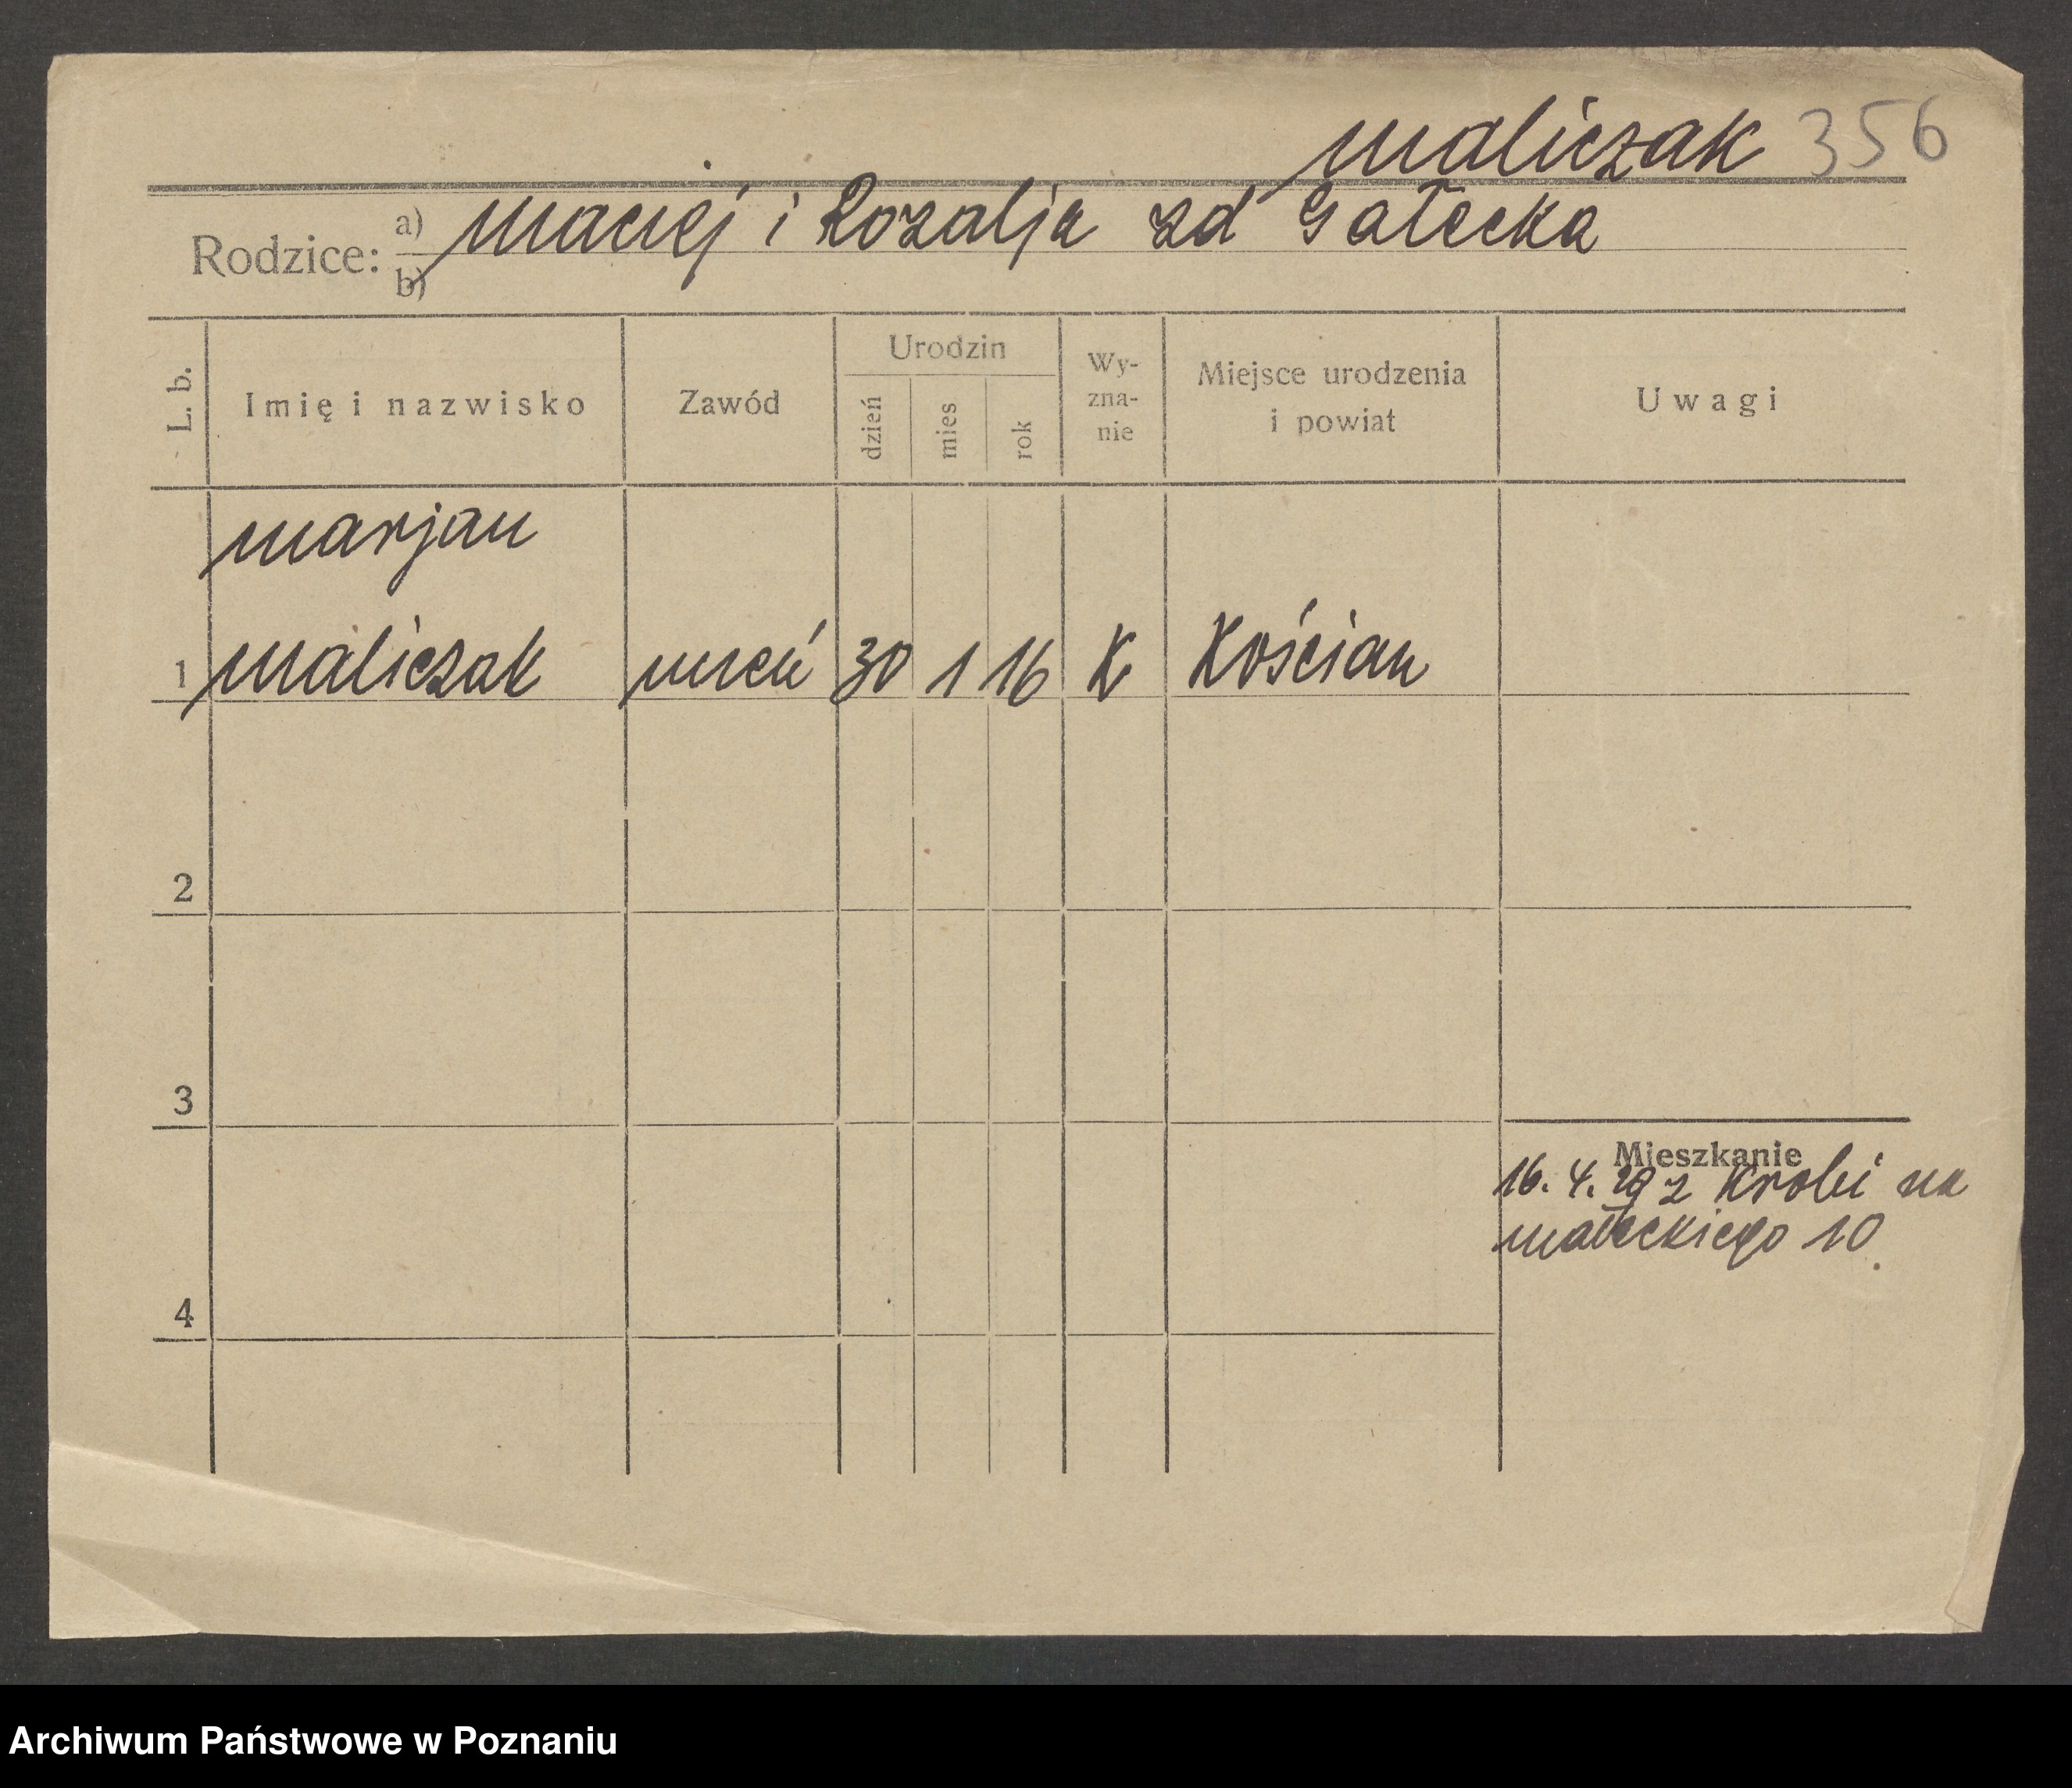 Maliczak 356
Rodzice: a) Maciej i Rozalja zd Gałecka
b)
L. b.
Imię i nazwisko
Zawód
Urodzin
dzień
mies
rok
Wy-
zna-
nie
Miejsce urodzenia
i powiat
Uwagi
Marjan
1 Maliczak uczeń 30 1 16 K Kościan
2
3
Mieszkanie
16. 4. 29 z Krobi na
Małeckiego 10.
4
Archiwum Państwowe w Poznaniu